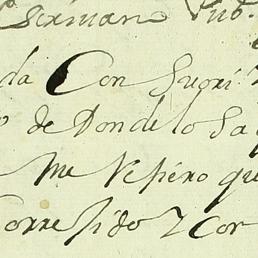 Escriuano Pub.
da Con Su ori
de Donde lo Sa
me Refiero que
Corregido y Cor